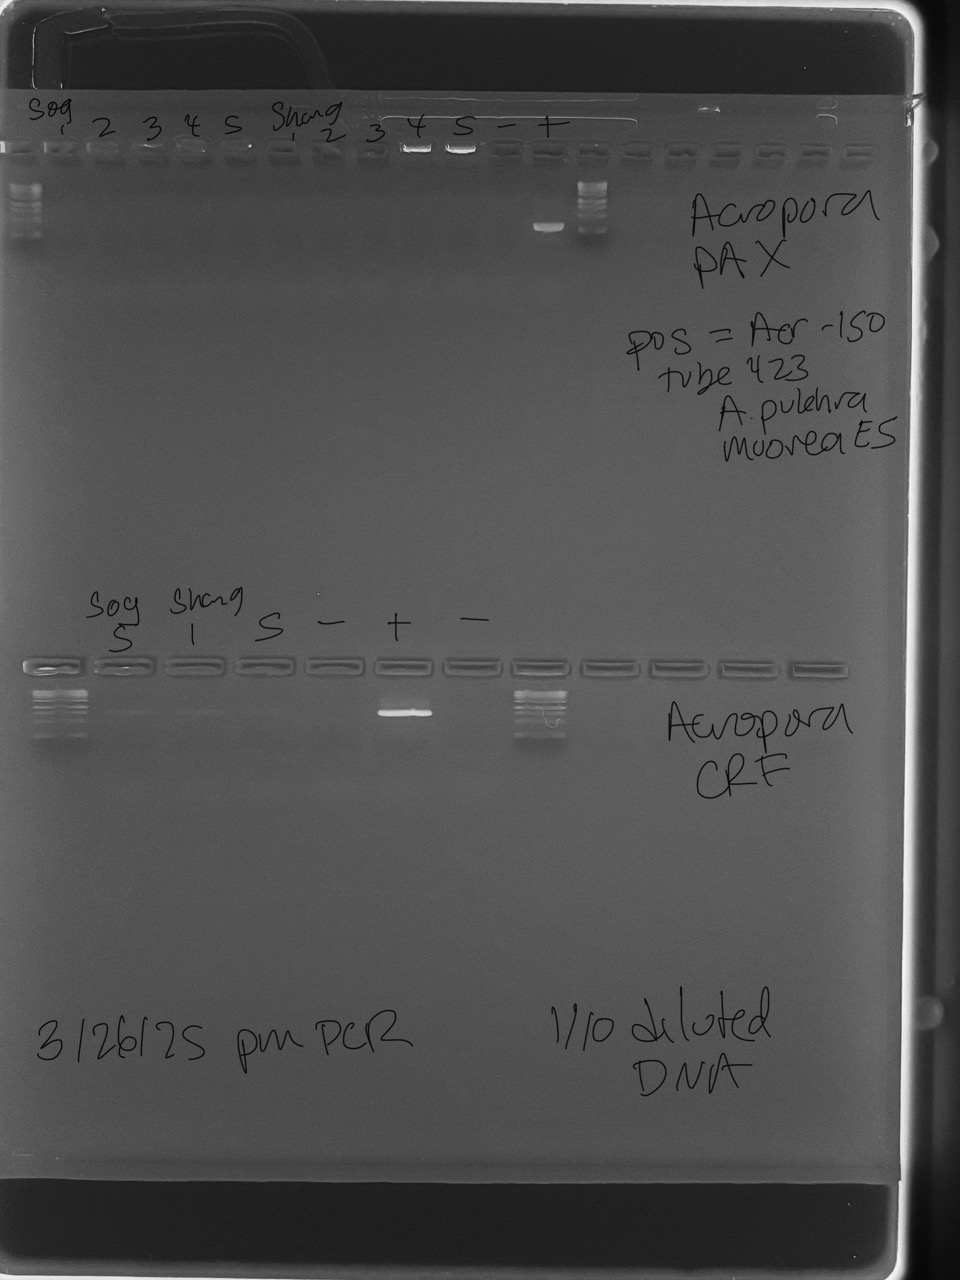 Sog Shang
1 2 3 4 5 1 2 3 4 5 - +
Acropora
PAX
pos = Acr -150
tube 423
A. pulchra
moorea E5
Sog Shang
5 1 5 - + -
Acropora
CRF
3/26/25 pm PCR
1/10 diluted
DNA